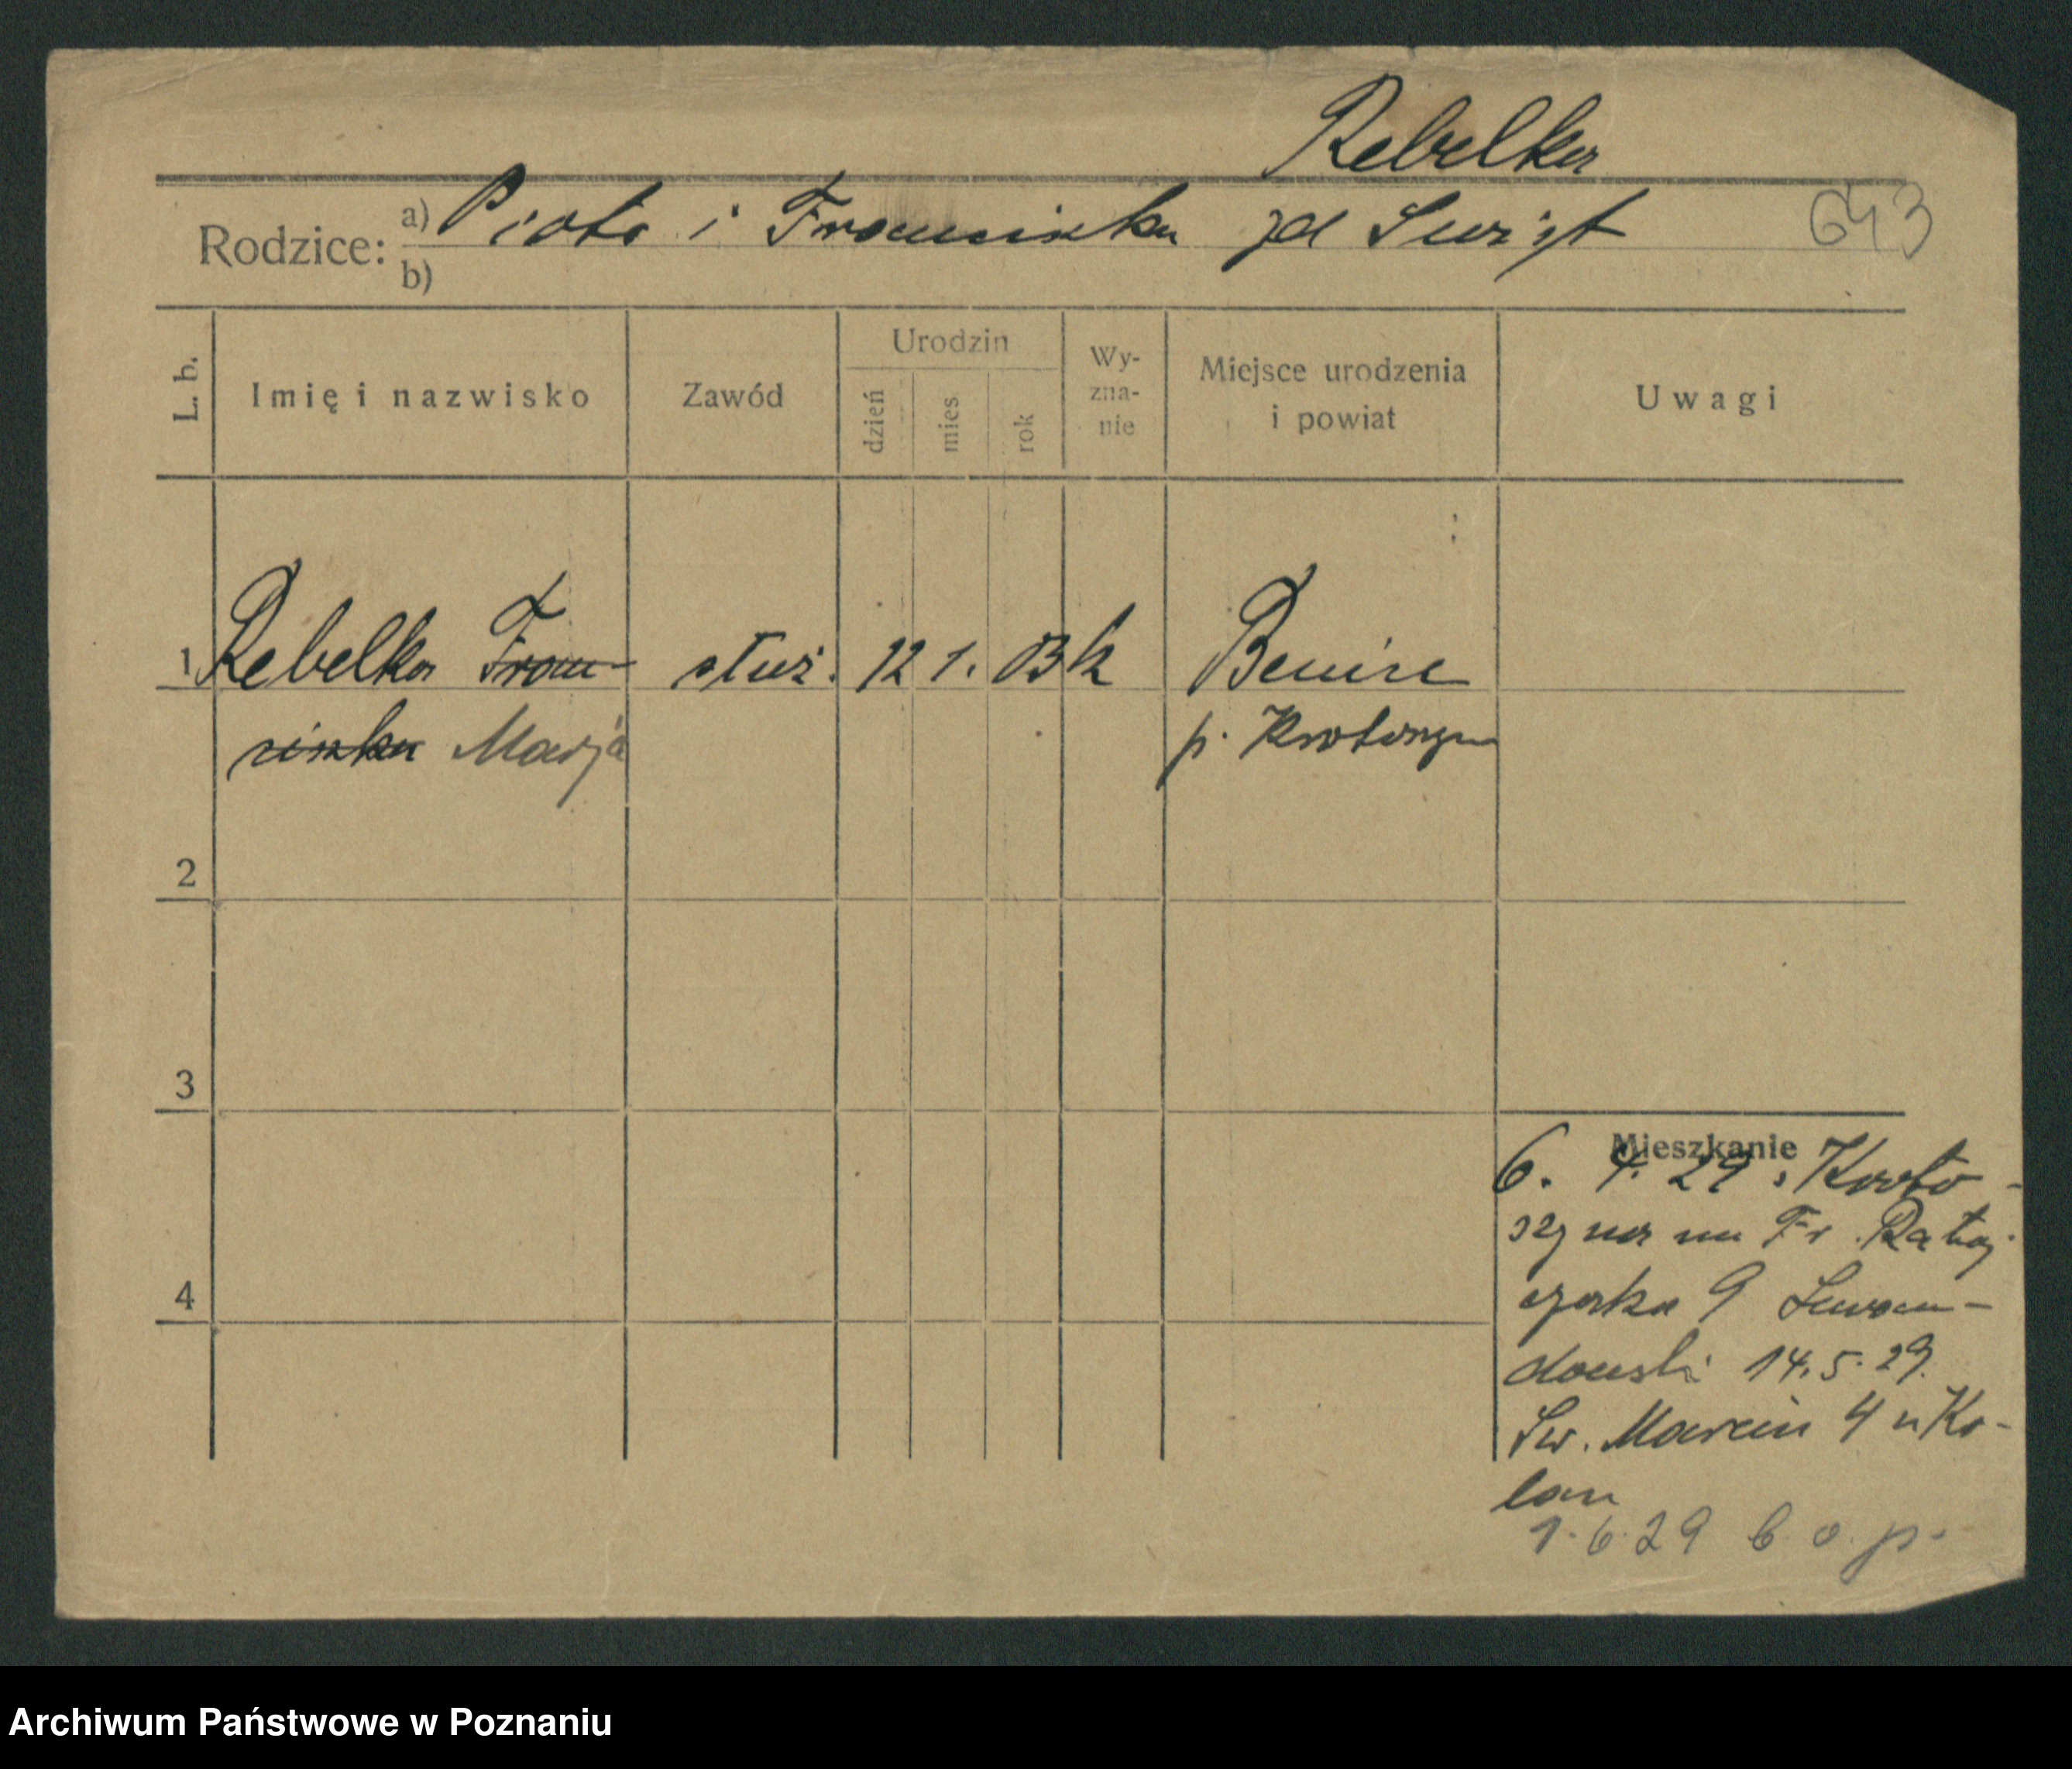 Rebelka
Rodzice: a) Piotr i Franciszka zd Świst 643
b)
L. b. Imię i nazwisko Zawód Urodzin dzień mies rok Wy-zna-nie Miejsce urodzenia i powiat Uwagi
1 Rebelka Fran- służ. 12 1. 03 k Benice
ciszka Marja p. Krotoszyn
2
3
4
Mieszkanie
6. 4. 29 z Kroto-
szyna na Fr. Rataj
czaka 9 Lewan-
dowski 14.5.29.
Św. Marcin 4 u Ko-
lan
1.6.29 b. o. p.
Archiwum Państwowe w Poznaniu